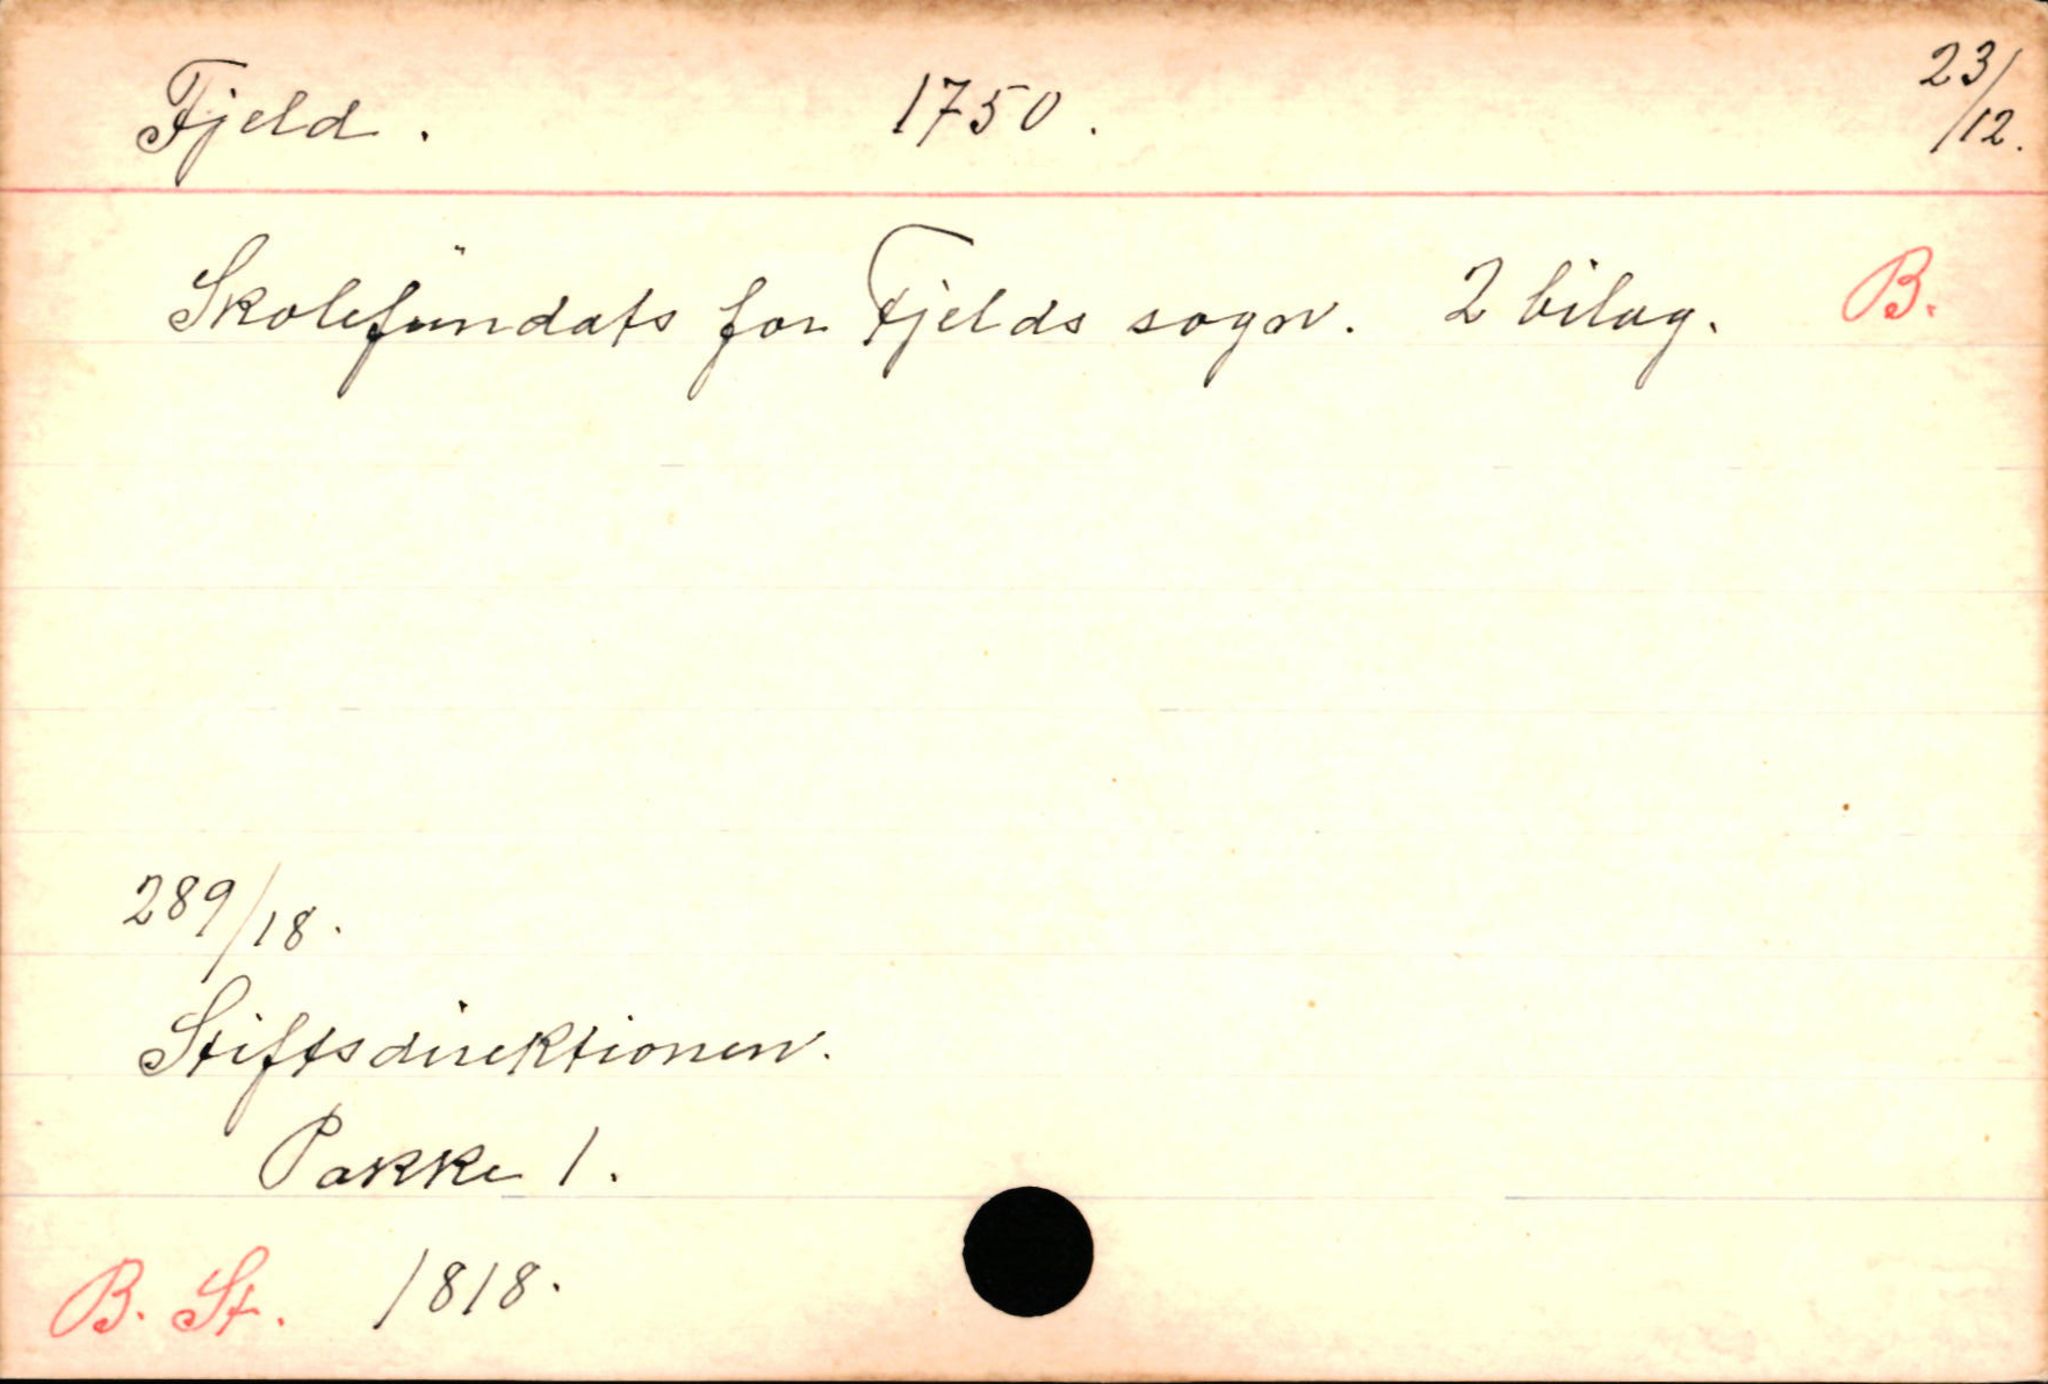 Fjeld. 1750. 23/12.
Skolefundats for Fjelds sogn. 2 bilag. B.
289/18.
Stiftsdirektionen.
Pakke 1.
B. St. 1818.